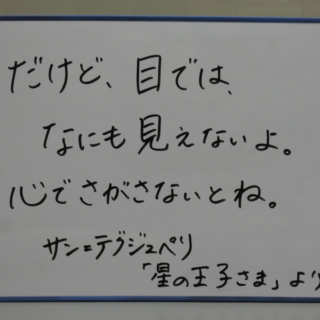 だけど、目では、
なにも見えないよ。
心でさがさないとね。
サン=テグジュペリ
「星の王子さま」より